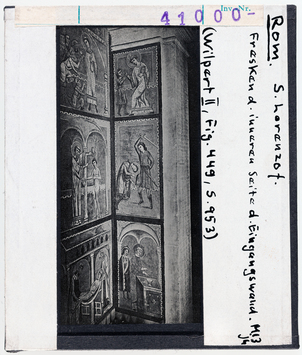 41000-
Inv. Nr.
Rom. S. Lorenzo f.
Fresken d. inneren Seite d. Eingangswand.
(Wilpert II, Fig. 449, S. 953)